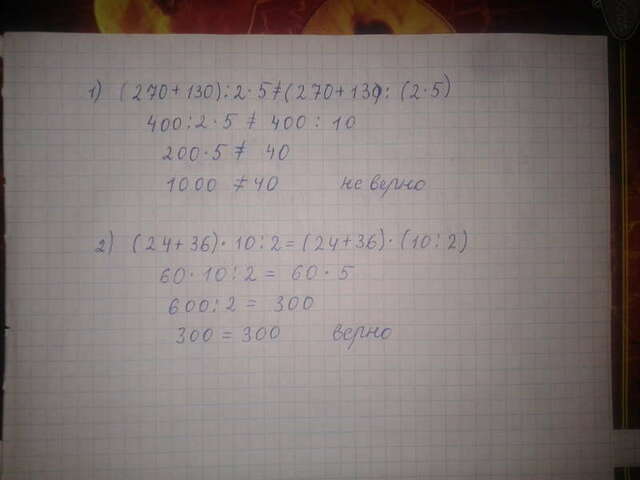 1) (270+130):2·5≠(270+130): (2·5)
400:2·5 ≠ 400 : 10
200·5 ≠ 40
1000 ≠ 40 не верно
2) (24+36)·10:2=(24+36)·(10:2)
60·10:2 = 60·5
600:2 = 300
300 = 300 верно